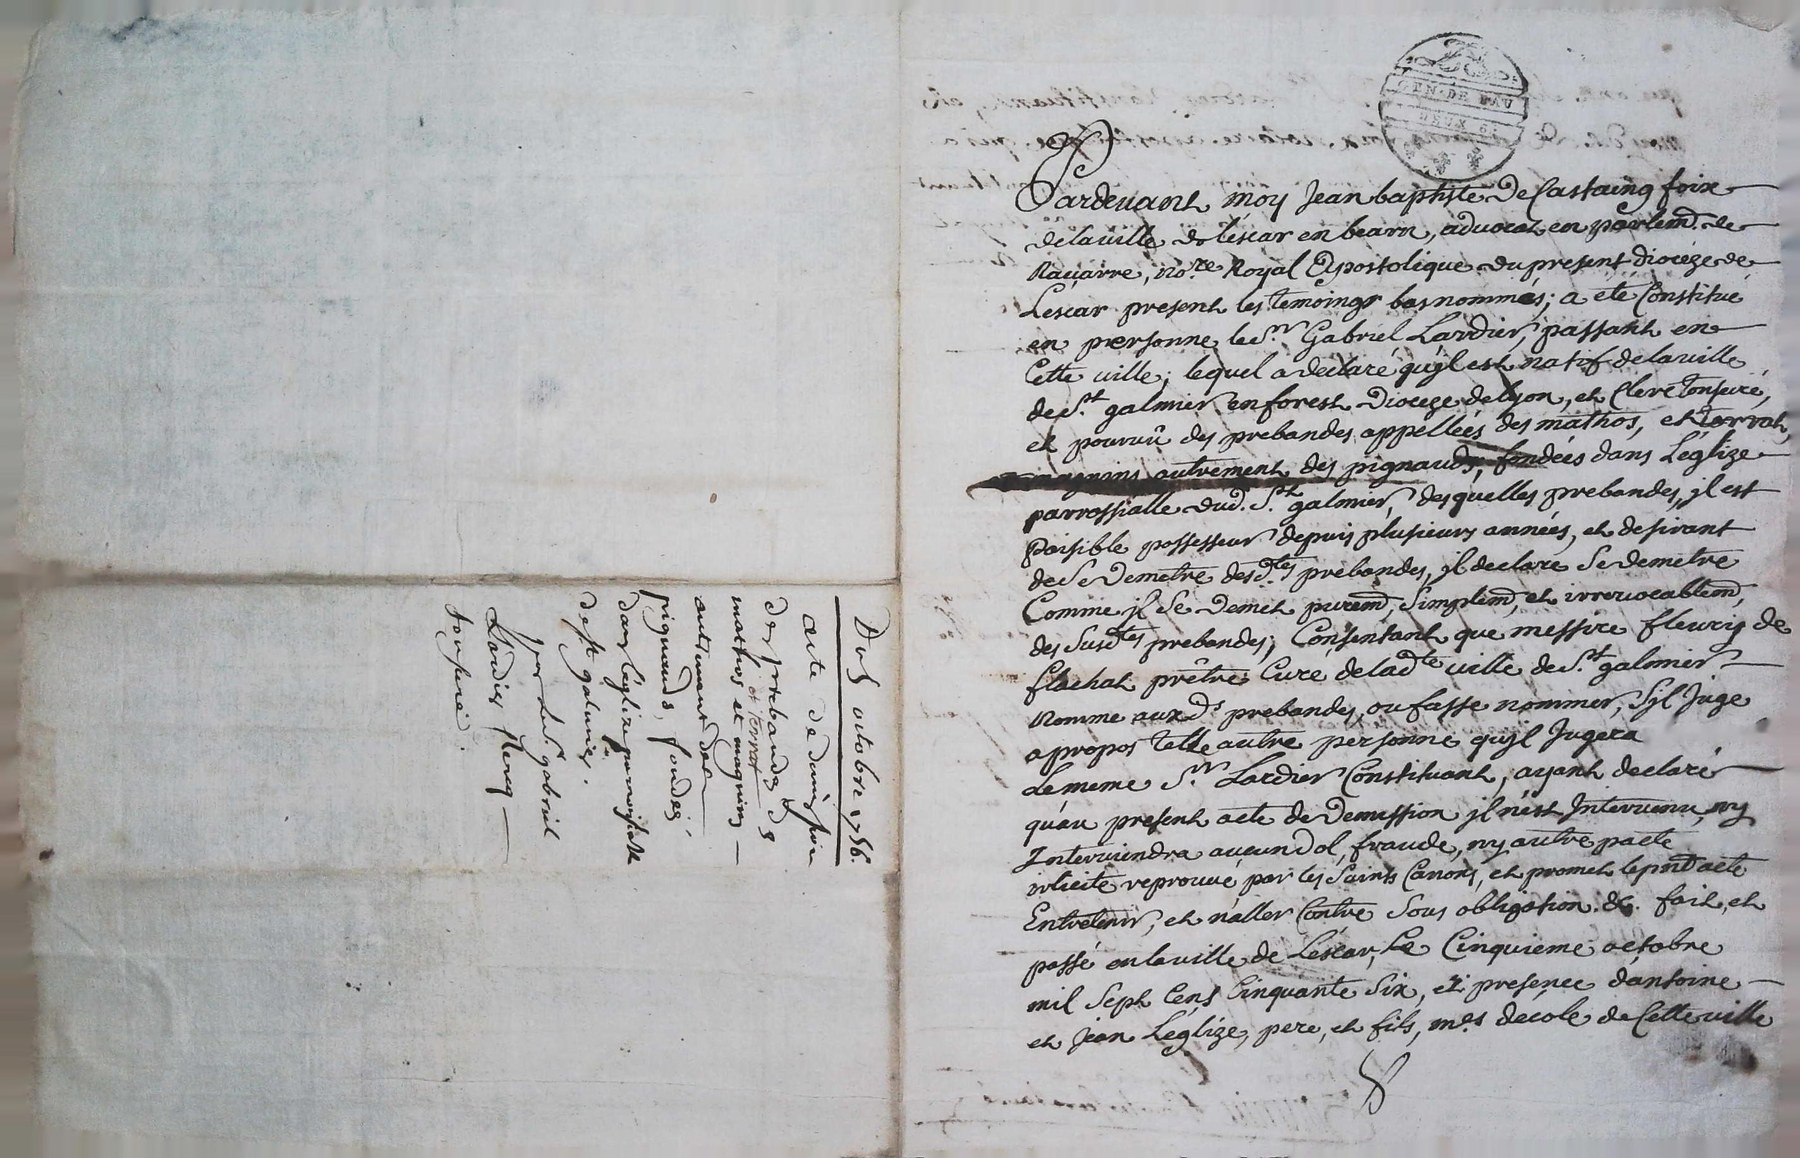 GEN. DE PAU
DEUX
Pardevant moy Jean baptiste De Castaing foix
delaville de lescar en bearn, advocat en parlemt. de
Navarre, nore. Royal Apostolique du present dioceze de
Lescar present les temoings bas nommés; a eté Constitué
en personne le Sr. Gabriel Lardier, passant en
Cette ville; lequel a declaré qu'jl est natif delaville
de St. galmier en forest Dioceze de lyon, et Clerc tonsuré,
et pourvû des prebandes appellées des mathos, et torrat,
magnins autrement des pignauds, fondées dans L'églize
parrossialle dud. St. galmier, desquelles prebandes, jl est
Paisible possesseur depuis plusieurs années, et desirant
de Se Demetre desdtes. prebandes, jl declare Se demetre
Comme jl Se Demet puremt, Simplemt, et irrevocablemt,
des Susdtes prebandes, Consentant que messire fleury de
flachat prêtre Cure deladte ville de St. galmier
Nomme auxds. prebandes, ou fasse nommer, S'jl Juge
a propos telle autre personne qu'jl Jugera
Le meme Sr. Lardier Constituant, ayant declaré
qu'au present acte de Demission jl n'est Intervenu, ny
Interviendra aucun dol, fraude, ny autre pacte
illicite reprouvé par les Saints Canons, et promet le pnt acte
Entretenir, et n'aller Contre Sous obligation &c. fait, et
passé en laville de Lescar, Le Cinquieme octobre
mil Sept Cens Cinquante Six, et presence d'antoine
et Jean L'églize, pere, et fils, mes. d'école de Cette ville
Du 5 octobre 1756.
Acte de demission
des prebandes des
mathos et magnins
et torrat
autrement des
pignauds, fondés
dans l'églize parroissialle
de St galmier.
par le Sr. gabriel
Lardier Clerq
tonsuré.